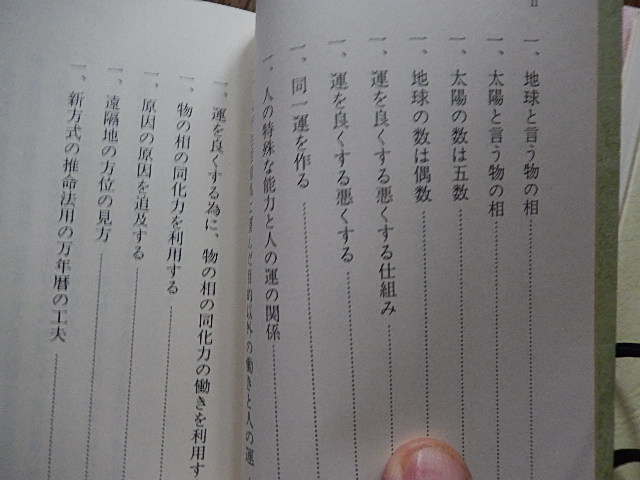 一、地球と言う物の相
一、太陽と言う物の相
一、太陽の数は五数
一、地球の数は偶数
一、運を良くする悪くする仕組み
一、運を良くする悪くする
一、同一運を作る
一、人の特殊な能力と人の運の関係
以外の働きと人の運
一、運を良くする為に、物の相の同化力の働きを利用す
一、物の相の同化力を利用する
一、原因の原因を追及する
一、遠隔地の方位の見方
一、新方式の推命法用の万年暦の工夫